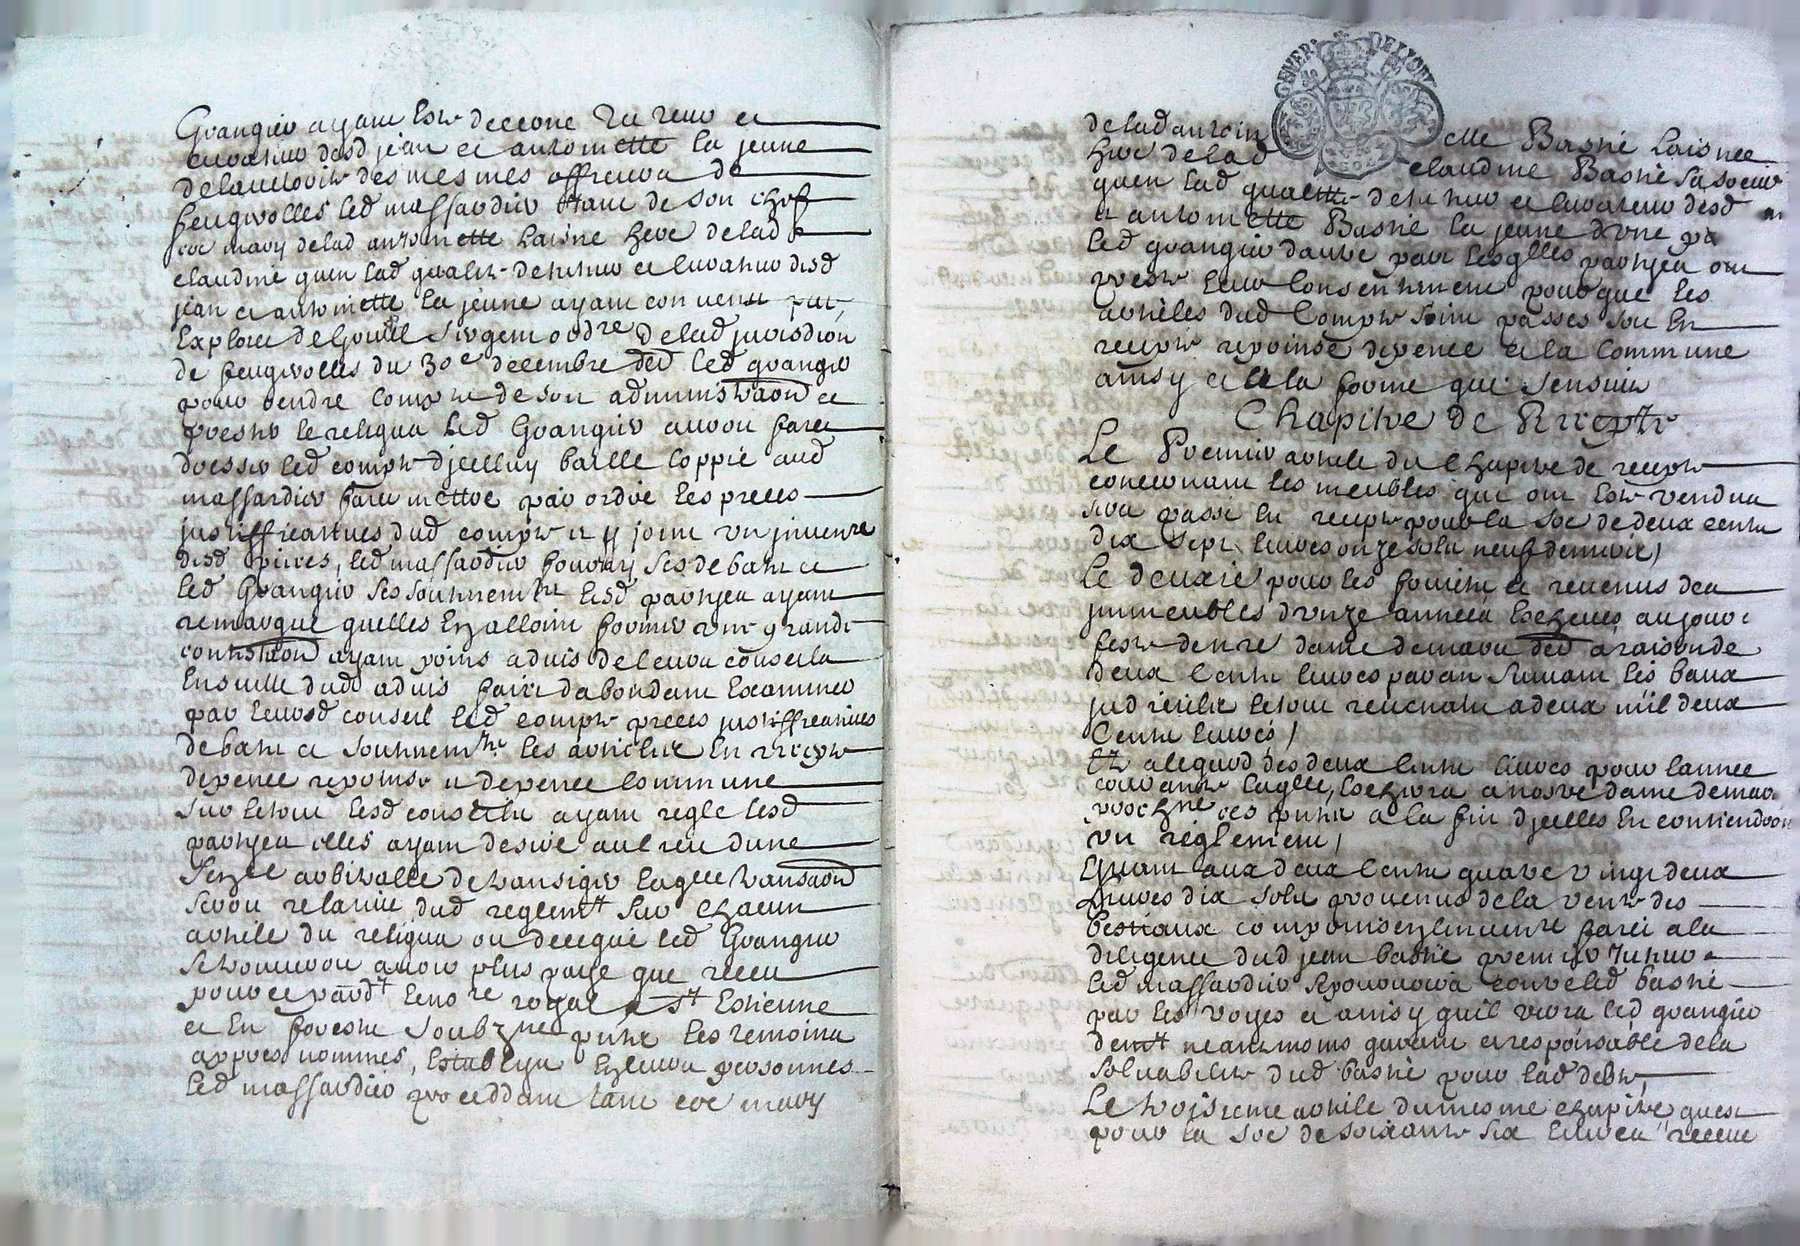 Grangier ayant este decerné tuteur et
curateur desd jean et antoinette la jeune
de lauctorite des mesmes officiers de
feugerolles led massardier tant de son chef
coe mary de lad antoinette laisne here de lad
claudine quen lad qualite de tuteur et curateur desd
jean et antoinette la jeune ayant convenu par
Exploict de sergent ordre de lad jurisdion
de feugerolles du 30e decembre der led grangier
pour rendre compte de son administraon et
prester le reliqua led Grangier auroit faict
dresser led compte djcelluy baille coppie aud
massardier faict mettre par ordre les pieces
justifficatives dud compte et y joint un jnvenre
desd pieces, led massardier fourny ses debatz et
led Grangier ses soustnementz lesd parties ayant
remarque quelles Enalloint former une grande
contestaon ayant prins advis de leurs conseils
Ensuitte dud advis faict dabondant Examiner
par leursd conseil led compte pieces justifficatives
debatz et soustnementz les articles En recepte
depence reprinse et depence commune
sur le tout lesd conseilz ayant regle lesd
parties elles ayant desire au lieu dune
Sence arbitralle de transiger laqlle transaon
seroit relative dud reglemt sur chacun
article du reliqua ou decequé led Grangier
se trouveroit avoir plus paye que receu
pour ce pardt le nore royal a st Estienne
et En forestz soubzne putz les temoins
appres nommes, Establys En leurs personnes
led massardier proceddant tant coe mary
de lad antoinette Basné Laisnee
here de lad claudine Basné sa soeur
quen lad qualitte de tuteur et curateur desd
et antoinette Basné la jeune dune pa
led grangier dautre part lesqlles parties ont
preste leur consentement pour que les
articles dud Compte soint passes soit En
recepte reprinse depence et la commune
ainsy et de la forme que sensuit
Chapitre de Recepte
Le Premier article du chapitre de recepte
concernant les meubles qui ont este vendus
sera passé En recepte pour la soe de deux centz
dix sept livres onze solz neuf deniers /
Le deuxie pour les fruictz et revenus des
jmmeubles donze annees Escheues au jour
feste de nre dame de mars der a raison de
deux centz livres par an suivant les baux
judicielz le tout revenantz a deux mil deux
Centz livres /
Et a legard des deux centz livres pour lannee
courante laqlle Eschera a nostre dame de mars
prochne ces putz a la fin djcelles En contiendront
un reglement /
Quant aux deux centz quatre vingt deux
livres dix solz provenus de la vente des
bestiaux comprins en linventre faict a la
diligence dud jean basné premier tuteur
led massardier se pourvoira contre led basné
par les voyes et ainsy quil verra led grangier
demt neantmoins garant et responsable de la
solvabilite dud basné pour lad debte,
Le troisieme article du mesme chapitre quest
pour la soe de soixante six livres receue